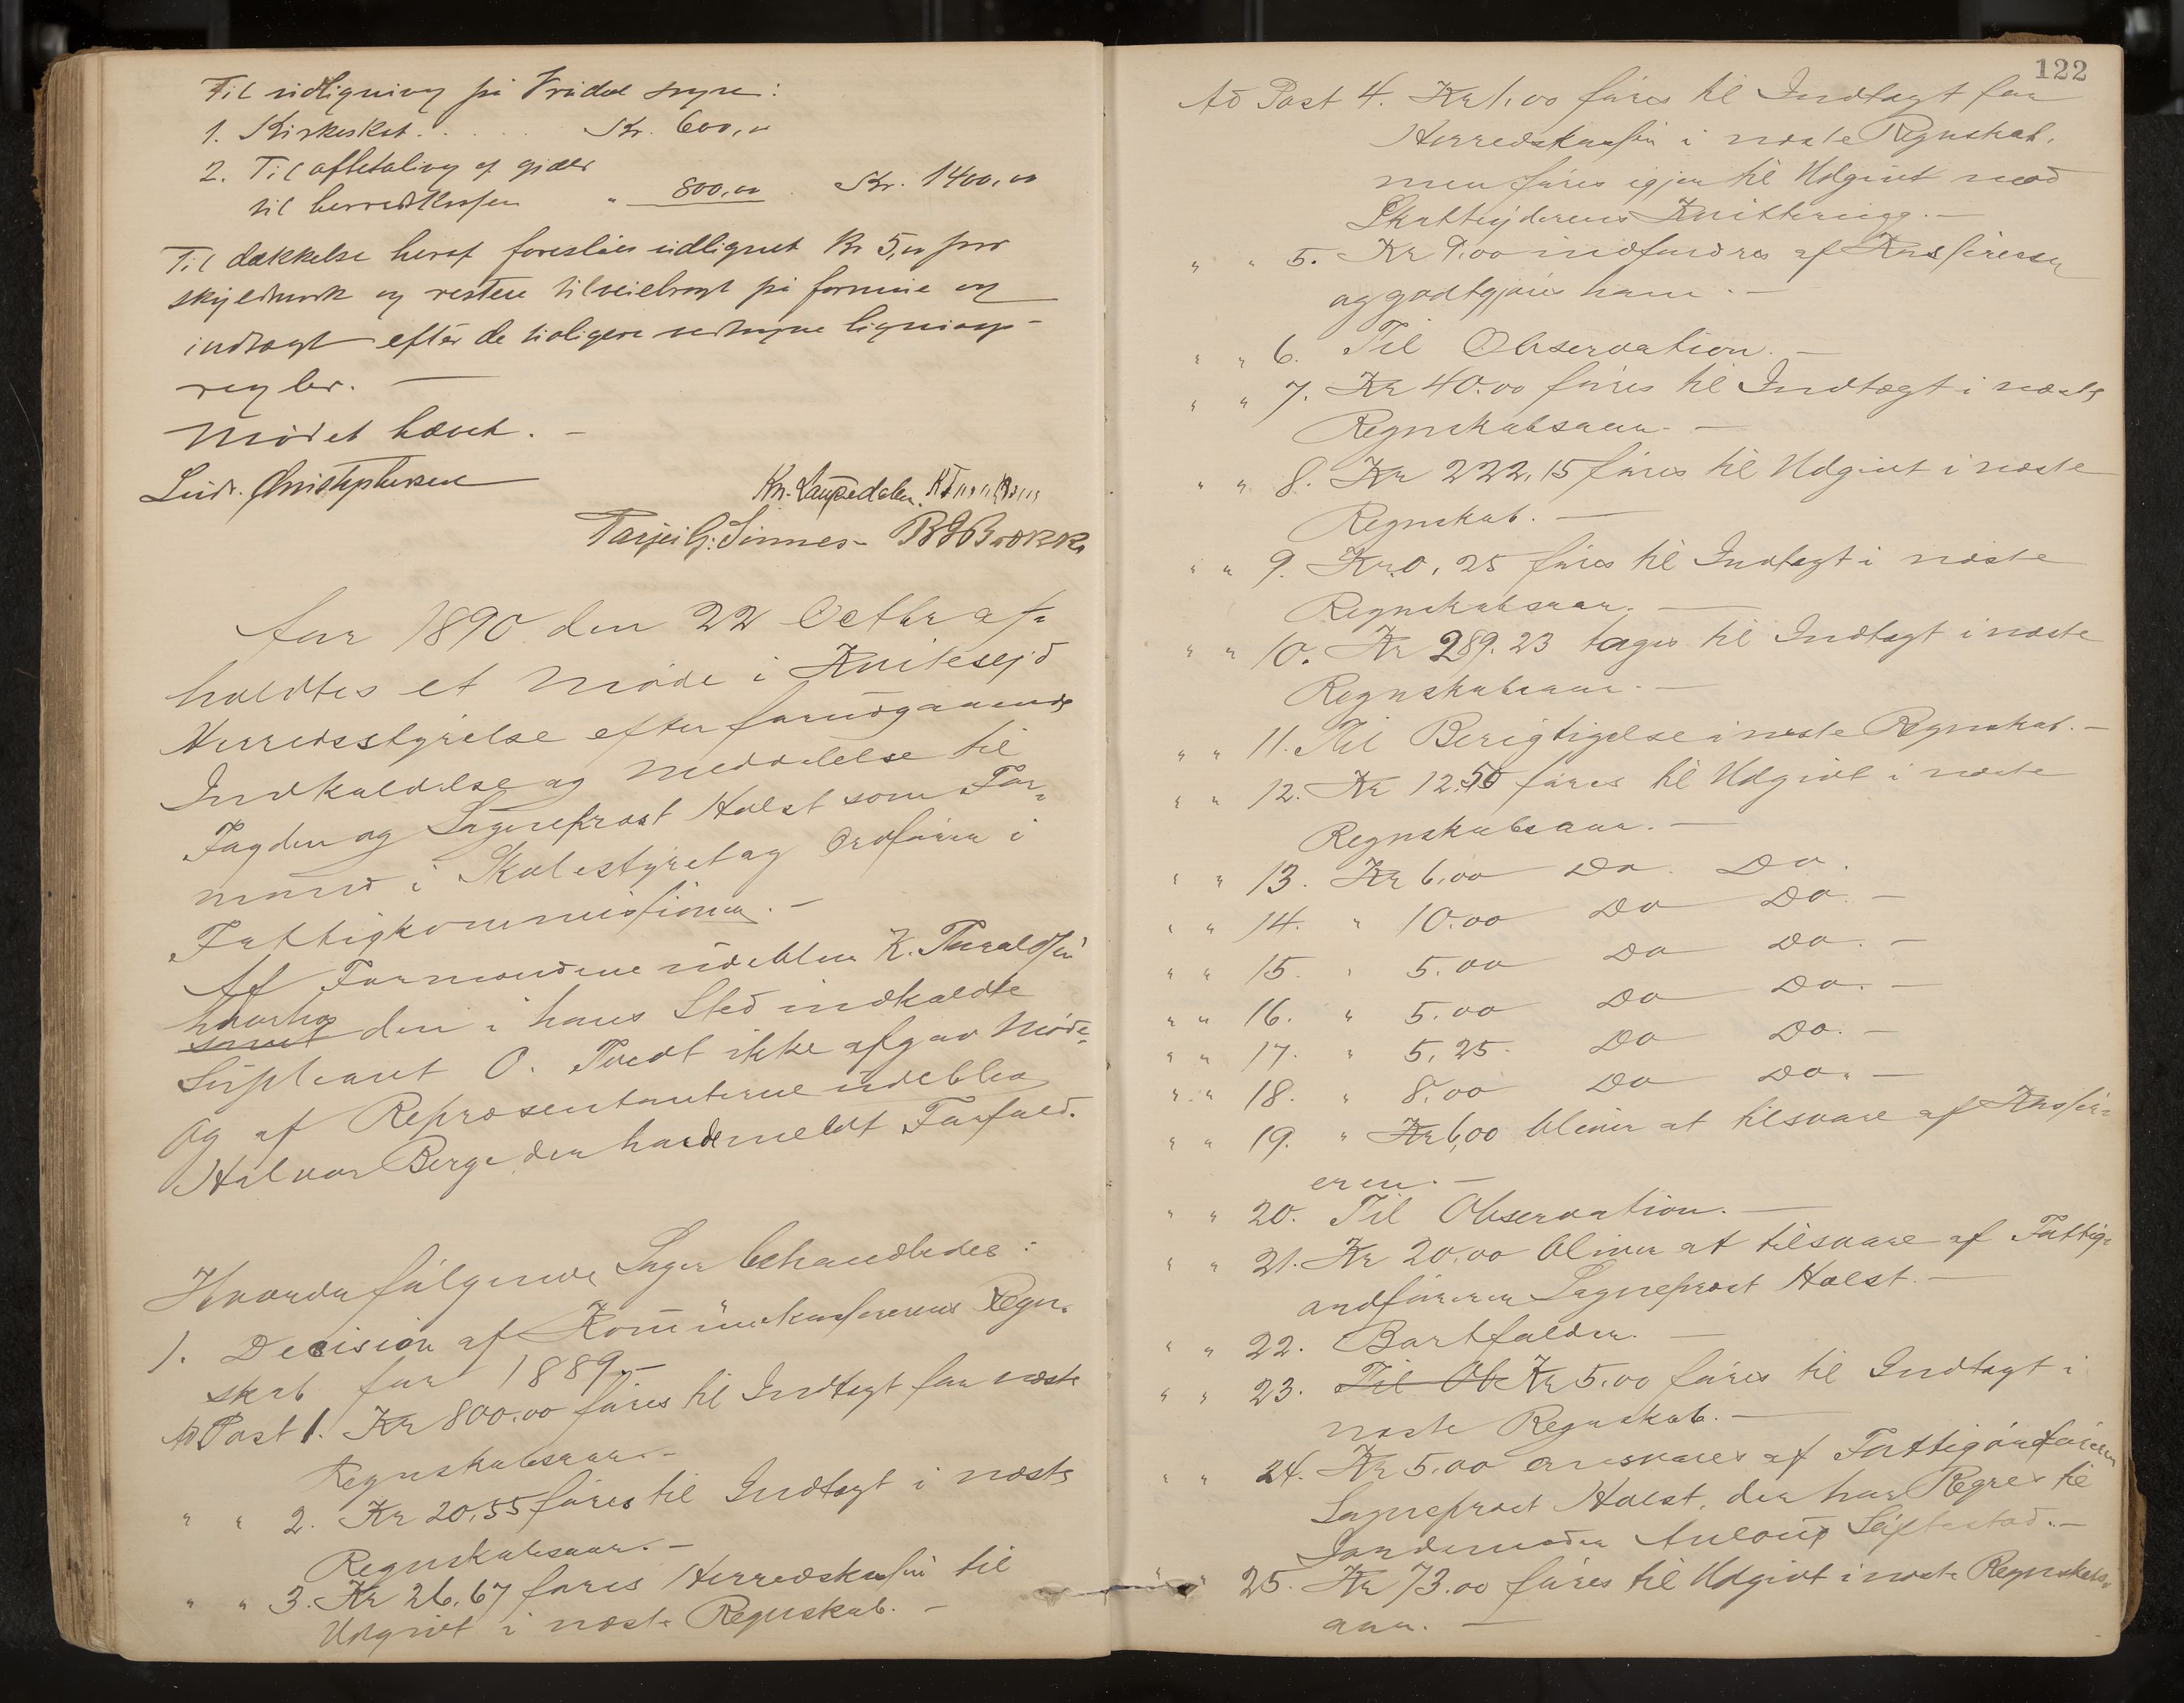 Til udligning på Vrådal sogn:
1. Kirkeskat . . . . . Kr. 600,00
2. Til afbetaling af gjæld
til herredskassen " 800,00 . Kr. 1400,00
Til dækkelse heraf foreslåes udlignet Kr 5,00 pro
skyldmark og resten tilveiebragt på formue og
indtægt efter de tidligere vedtagne lignings-
regler. —
Mødet hævet. -
Ludv. Christophersen
Kn. Laupedalen.
Tarjei G: Sinnes - B G Brokke
Aar 1890 den 22 Octbr af=
holdtes et Møde i Kvitesejd
Herredsstyrelse efter forudgaaende
Indkaldelse og Meddelelse til
Fogden og Sogneprost Holst som For=
mand i Skolestyret og Ordfører i
Fattigkommissionen. -
Af Formændene udeblev K. Tharaldsen
hvorhos den i hans Sted indkaldte
Supleant O. Tvedt ikke afgav Møde=
Og af Repræsentanterne udeblev
Halvor Berge den havde meldt Forfald.
Hvorda følgende Sager behandledes:
1. Decision af Kommunekassererens Regn-
skab for 1889. -
Ad Post 1. Kr 800.00 føres til Indtægt for næste
Regnskabsaar. -
" " 2. Kr 20,55 føres til Indtægt i næste
Regnskabsaar. -
" " 3. Kr 26,67 føres Herredskassen til
Udgivt i næste Regnskab. -
122
Ad Post 4. Kr 1,00 føres til Indtægt for
Herredskassen i næste Regnskab.
men føres igjen til Udgivt mod
Skatteyderens Kvittering. -
" " 5. Kr 9.00 indfordres af Kassereren
og godtgjøres ham. -
" " 6. Til Observation. -
" " 7. Kr 40.00 føres til Indtægt i næste
Regnskabsaar. -
" " 8. Kr 222,15 føres til Udgivt i næste
Regnskab. -
" " 9. Kr. 0,25 føres til Indtægt i næste
Regnskabsaar. -
" " 10. Kr 289.23 tages til Indtægt i næste
Regnskabsaar. -
" " 11. Til Berigtigelse i næste Regnskab. -
" " 12. Kr 12.50 føres til Udgivt i næste
Regnskabsaar. -
" " 13. Kr 6,00 Do. Do.
" " 14. " 10.00 Do Do. -
" " 15. " 5.00 Do Do. -
" " 16. " 5.00 Do Do. -
" " 17. " 5,25. Do Do. -
" " 18. " 8,00 Do Do. -
" " 19. " Kr 6,00 bliver at tilsvare af Kasser=
eren. -
" " 20. Til Observation. -
" " 21. Kr 20,00 bliver at tilsvare af Fattig=
ordføreren Sogneprost Holst. -
" " 22. Bortfalder. -
" " 23. Til Ob Kr 5.00 føres til Indtægt i
næste Regnskab. -
" " 24. Kr 5.00 ansvares af Fattigordføreren
Sogneprost Holst, der har Regres til
Jordemoder Seljestad. -
" " 25. Kr 73.00 føres til Udgivt i næste Regnskabs=
aar. -